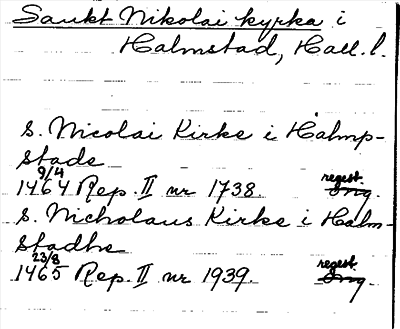 Sankt Nikolai kyrka i
Halmstad, Hall. l.
S. Nicolai Kirke i Halmp-
stade
1464 9/4 Rep. II nr 1738. regest.
S. Nicholaus Kirke i Halm-
stadhe
1465 23/8 Rep. II nr 1939. regest.